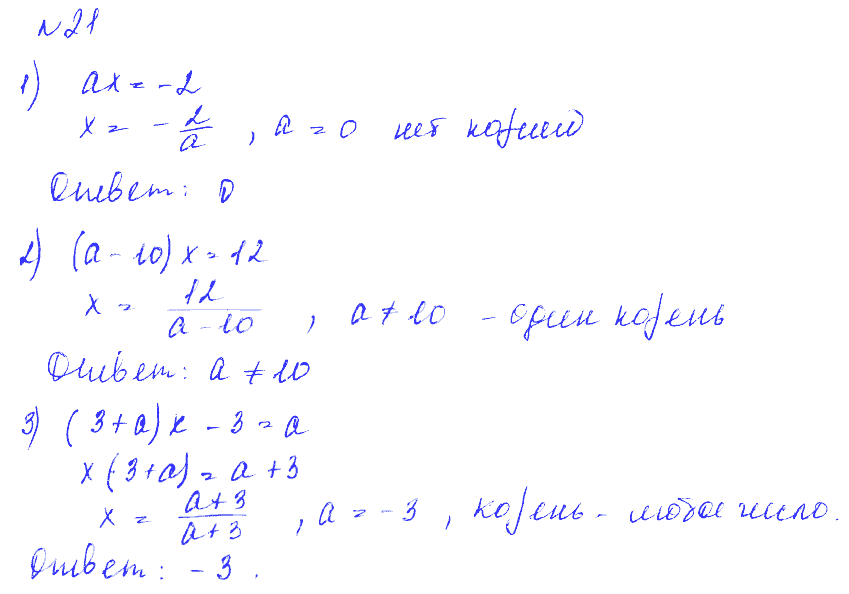 №21
1) ax = -2
x = - 2/a , a = 0 нет корней
Ответ: 0
2) (a - 10) x = 12
x = 12/(a - 10) , a ≠ 10 - один корень
Ответ: a ≠ 10
3) (3+a)x - 3 = a
x(3+a) = a + 3
x = (a+3)/(a+3) , a = -3 , корень - любое число.
Ответ: -3.